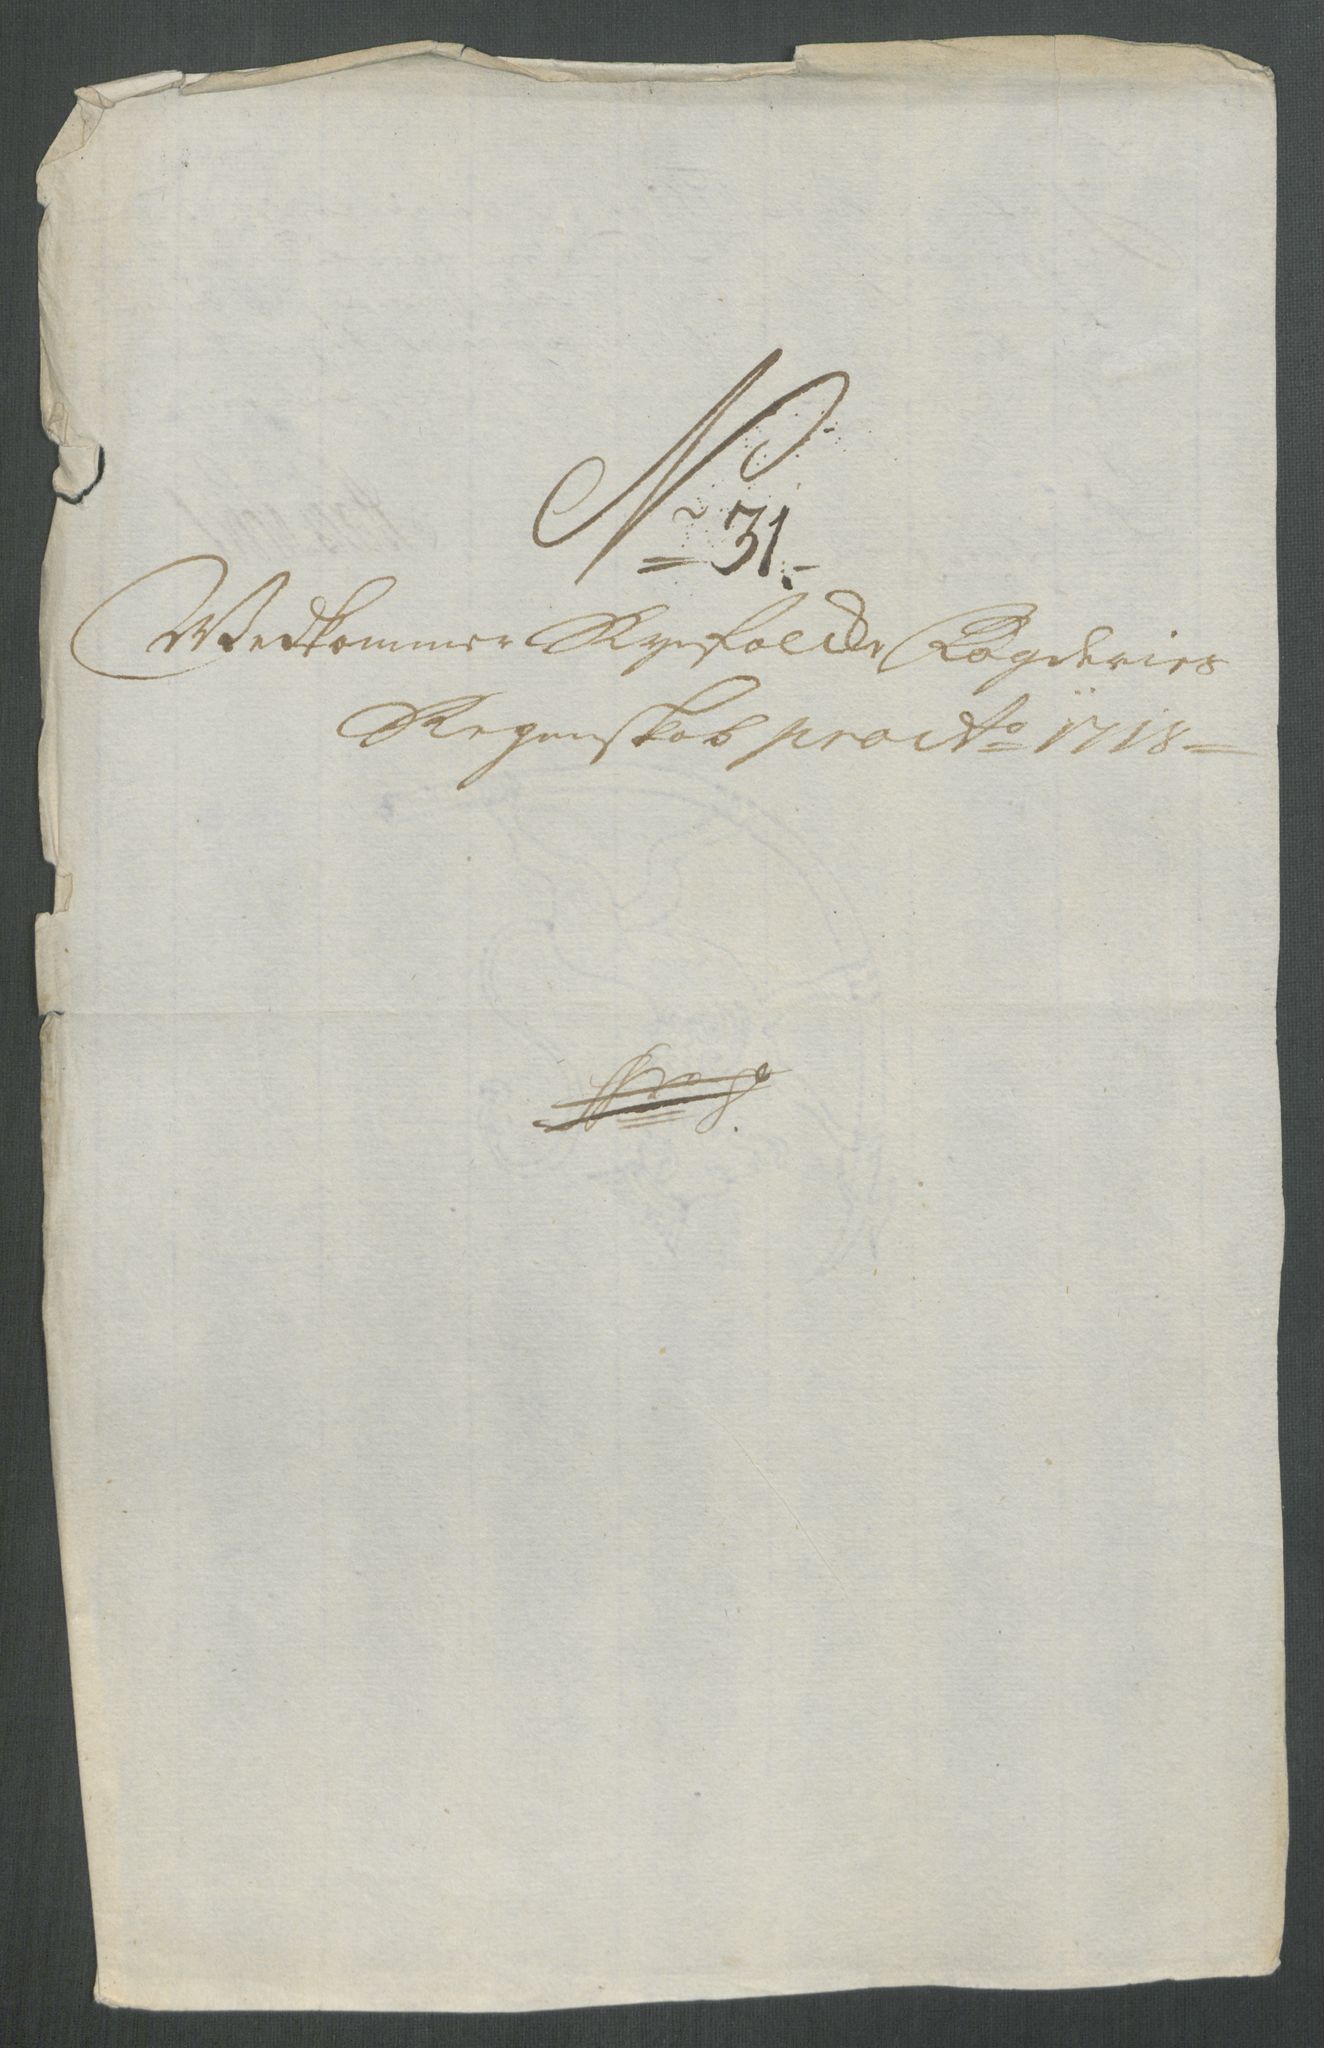 No 31.
Vedkommer Ryefølche Fogderies
Regenskab pro Ao 1718